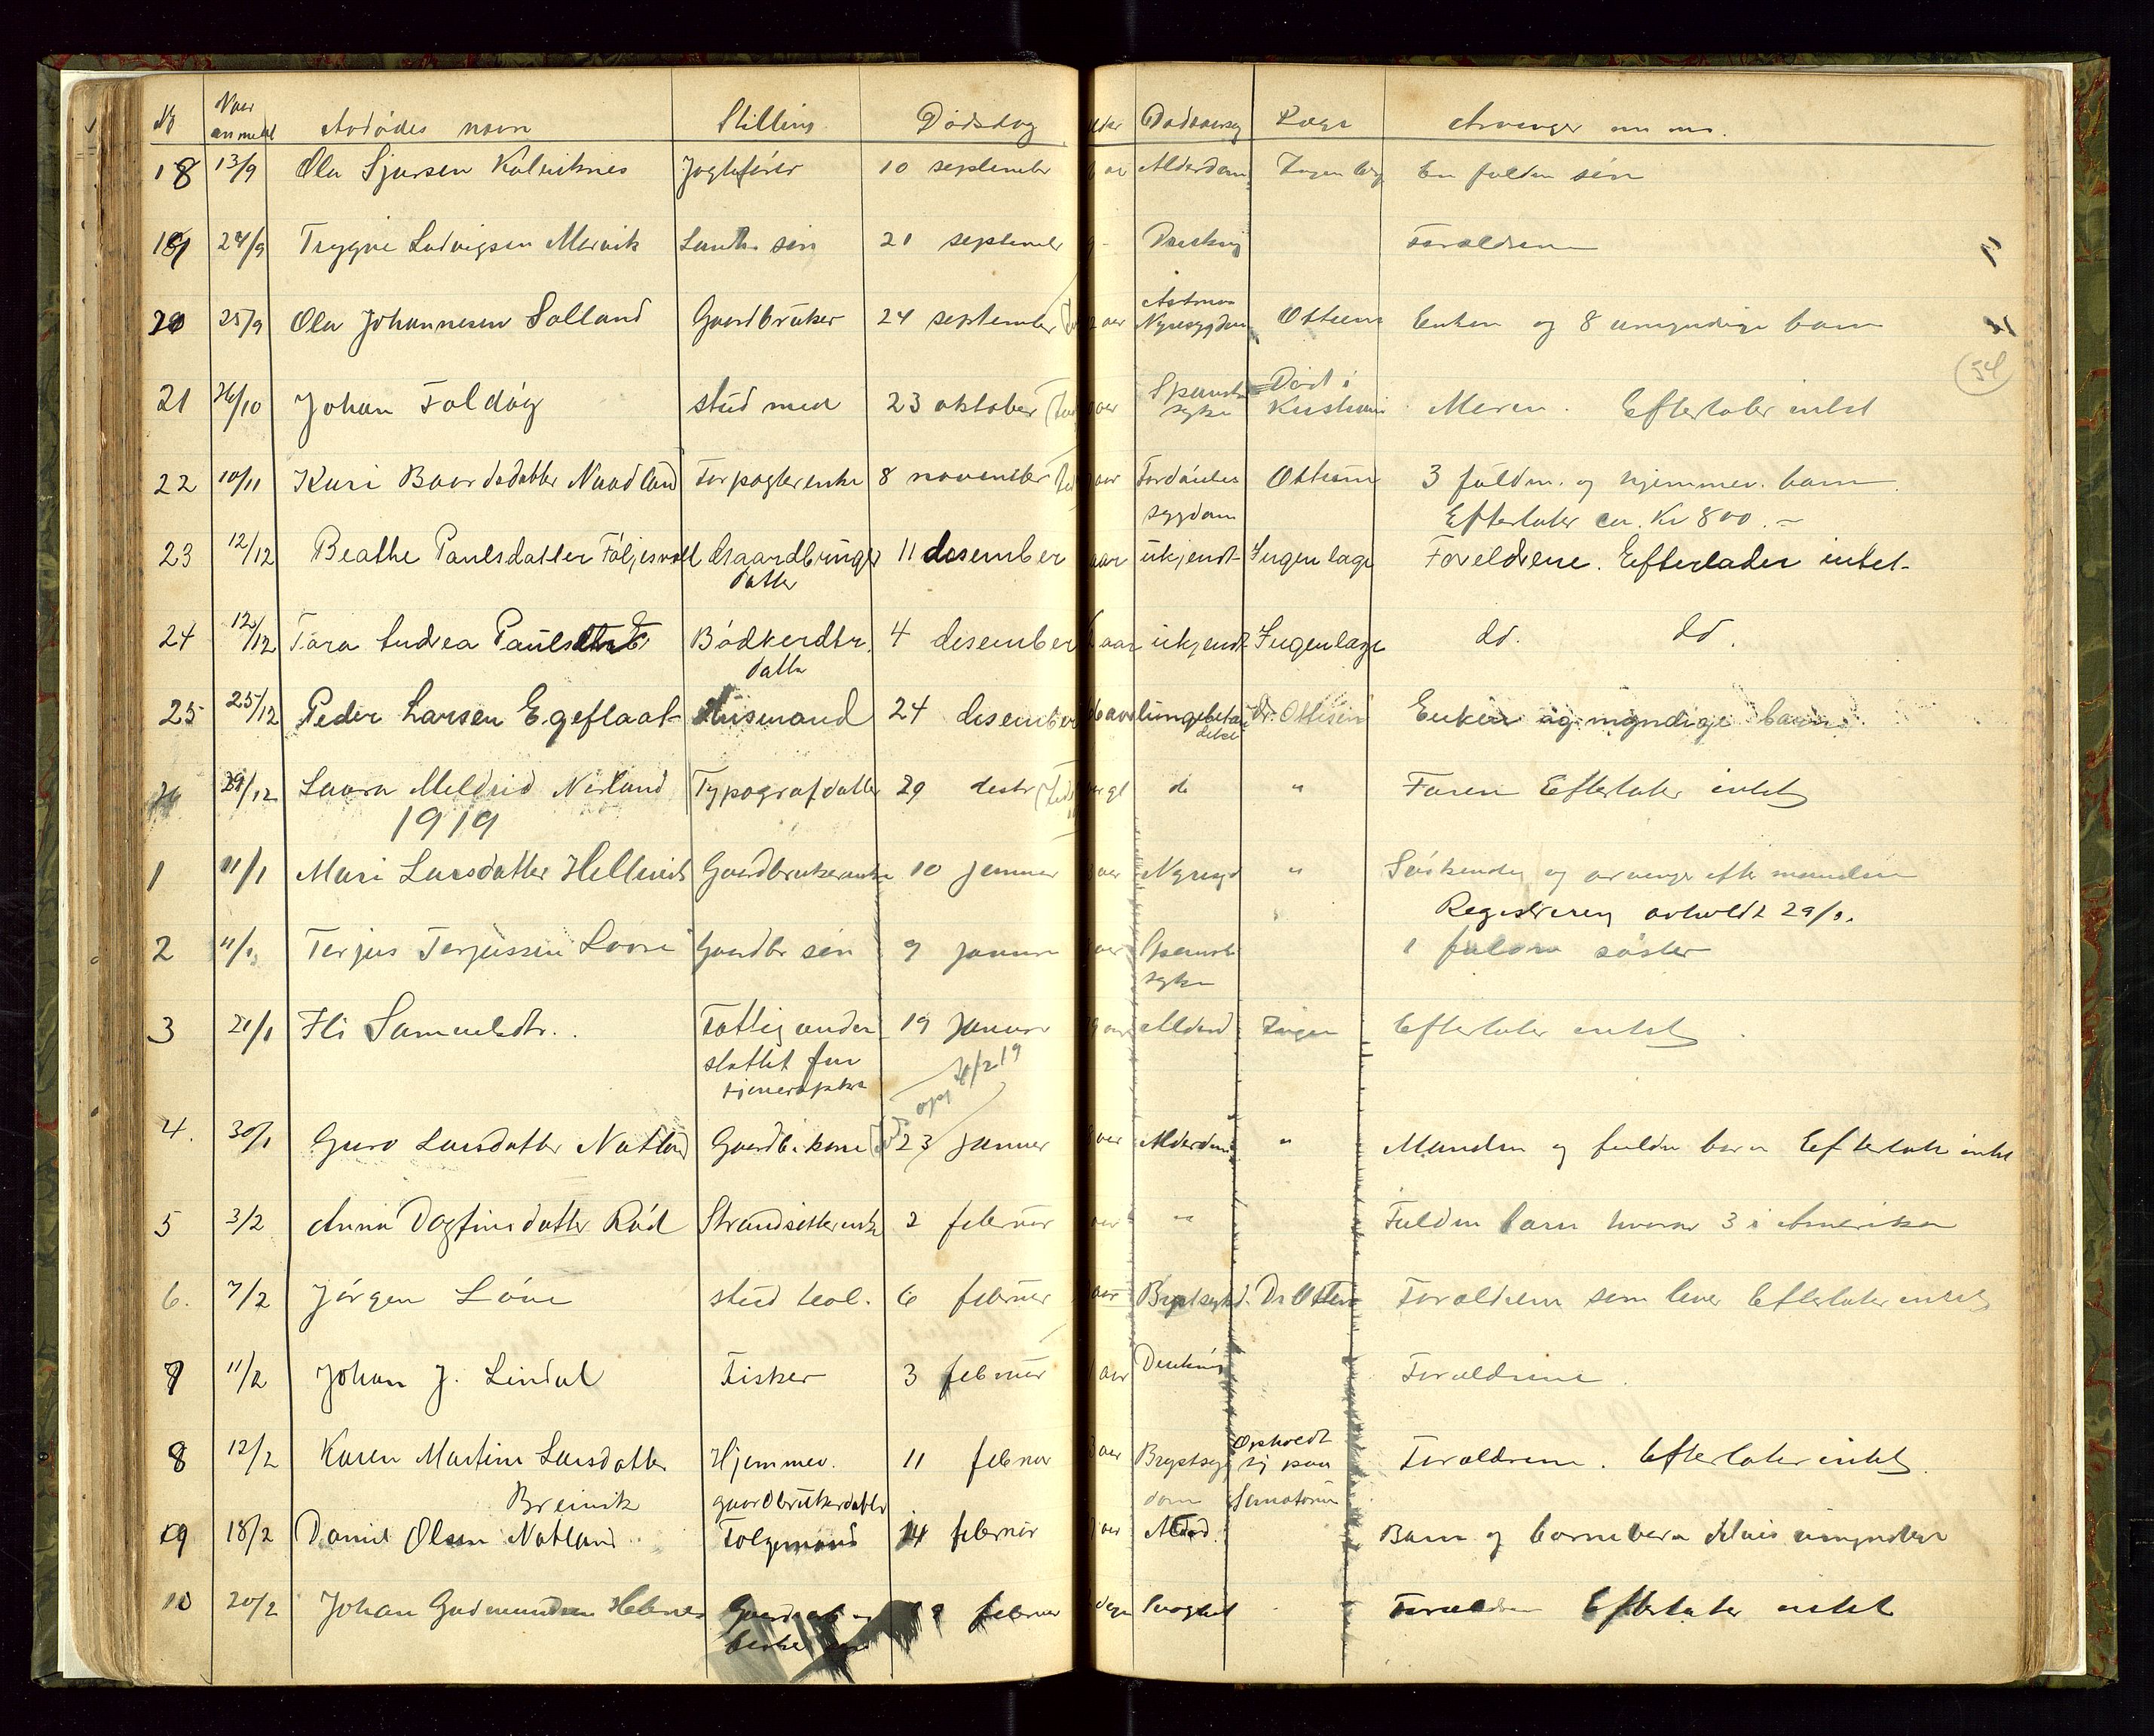 No Naar anmeld Avdødes navn Stilling Dødsdag Alder Dødsaarsag Læge Arvinger m.m.
18 13/9 Ola Sjursen Kalviknes Jagtefører 10 september aar Alderdom Ingen læge En fuldm søn
19 24/9 Trygve Ludvigsen Mervik søn 21 september Drukning Forældrene
Astma
20 25/9 Ola Johannesen Salland Gaardbruker 24 september aar Nyresygdom Ottesen Enken og 8 umyndige barn
54
Spansk Død i
21 26/10 Johan Foldøy stud med 23 oktober aar syke Kristiania Moren. Efterlater intet
22 10/11 Kari Baardsdatter Naadland Forpagterenke 8 november aar Fordøielses Ottesen 3 fuldm. og hjemmev. barn
sygdom Efterlater ca. Kr 800.–
23 12/12 Beathe Paulsdatter Føljesvold Gaardbruger 11 desember aar ukjendt Ingen læge Foreldrene. Efterlader intet.
datter
24 12/12 Tora Andrea Paulsdtr Bødkerdtr. 4 desember aar ukjendt Ingen læge do. do.
datter
25 25/12 Peder Larsen Egeflaat Husmand 24 desember aar lungebetæn dr. Ottesen Enken og myndige barn.
delse
26 29/12 Laura Meldrid Nerland Typografdatter 29 desbr do " Faren Efterlater intet
1919
1 11/1 Mari Larsdatter Hellvik Gaardbrukerenke 10 januar aar Nyresyd " Søskende og arvinger efter manden
Registrering avholdt 29/1.
2 11/1 Terjus Terjussen Loone Gaardbr søn 9 januar aar Spansk 1 fuldm søster
syke
3 21/1 Eli Samuelsdtr. Fattigunder 19 januar aar Alderd Ingen Efterlater intet
støttet før
tjenerspike
opg 4/2 19
4. 30/1 Guro Larsdatter Natland Gaardb. kone 23 januar aar Alderdom " Manden og fuldm barn Efterlater intet
5 3/2 Anna Dagfinsdatter Rød Strandsitterenke 2 februar aar " Fuldm barn hvorav 3 i Amerika
6. 7/2 Jørgen Løne stud teol. 6 februar aar Brystsygd. Dr Ottesen Forældrene som lever Efterlater intet
7 11/2 Johan J. Lindal Fisker 3 februar aar Drukning Forældrene.
Opholdt
8 12/2 Karen Martine Larsdatter Hjemmev. 11 februar aar Brystsyg sig paa Forældrene. Efterlater intet.
Breivik gaardbrukerdatter dom Sanatorium
9 18/2 Daniel Olsen Natland Følgemand 14 februar aar Alderd. Barn og barnebarn umyndige
10 20/2 Johan Gudmundsen Helenes februar dage Svaghet Forældrene Efterlater intet